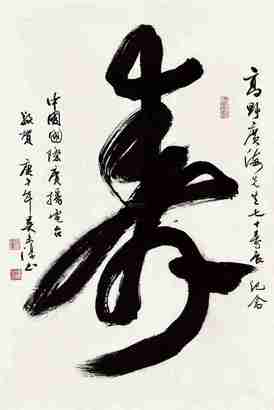 高野廣海先生七十壽辰 紀念
寿
中國國際廣播電台
敬賀 庚午年